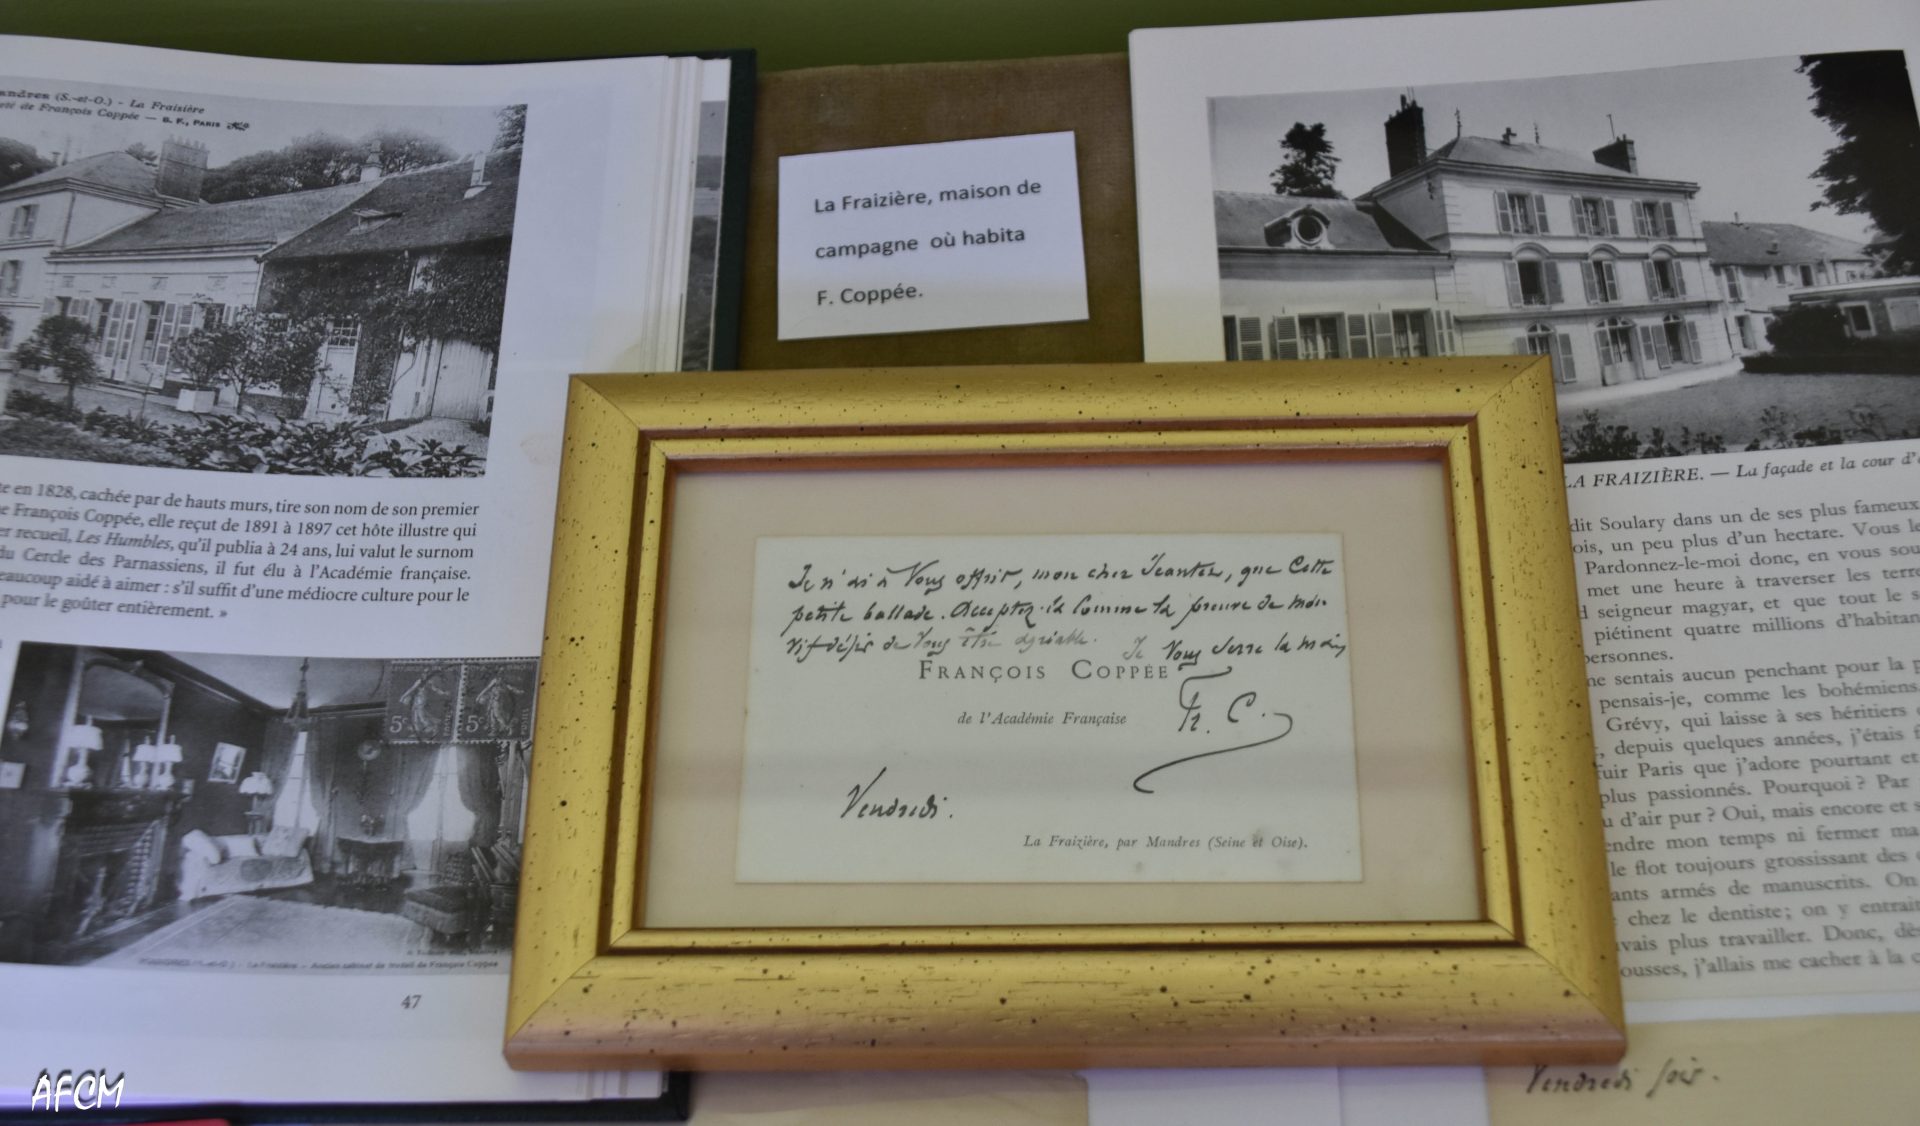 andres (S.-et-O.) - La Fraizière
été de François Coppée — B. F., PARIS
te en 1828, cachée par de hauts murs, tire son nom de son premier
e François Coppée, elle reçut de 1891 à 1897 cet hôte illustre qui
er recueil, Les Humbles, qu'il publia à 24 ans, lui valut le surnom
du Cercle des Parnassiens, il fut élu à l'Académie française.
eaucoup aidé à aimer : s'il suffit d'une médiocre culture pour le
pour le goûter entièrement. »
5c 5c
MANDRES (S.-et-O.) - La Fraizière - Ancien cabinet de travail de François Coppée
47
La Fraizière, maison de
campagne où habita
F. Coppée.
Je n'ai à Vous offrir, mon cher Jeantet, que Cette
petite ballade. Acceptez-la Comme la preuve de mon
vif désir de Vous être agréable. Je Vous serre la main
FRANÇOIS COPPÉE
de l'Académie Française
Fr. C.
Vendredi.
La Fraizière, par Mandres (Seine et Oise).
LA FRAIZIÈRE. — La façade et la cour d'
dit Soulary dans un de ses plus fameux
ois, un peu plus d'un hectare. Vous le
Pardonnez-le-moi donc, en vous sou
met une heure à traverser les terre
d seigneur magyar, et que tout le s
piétinent quatre millions d'habitan
personnes.
ne sentais aucun penchant pour la p
pensais-je, comme les bohémiens
Grévy, qui laisse à ses héritiers
, depuis quelques années, j'étais f
fuir Paris que j'adore pourtant et
plus passionnés. Pourquoi ? Par
u d'air pur ? Oui, mais encore et s
endre mon temps ni fermer ma
le flot toujours grossissant des
ants armés de manuscrits. On
chez le dentiste; on y entrait
vais plus travailler. Donc, dès
ousses, j'allais me cacher à la c
Vendredi soir.
AFCM